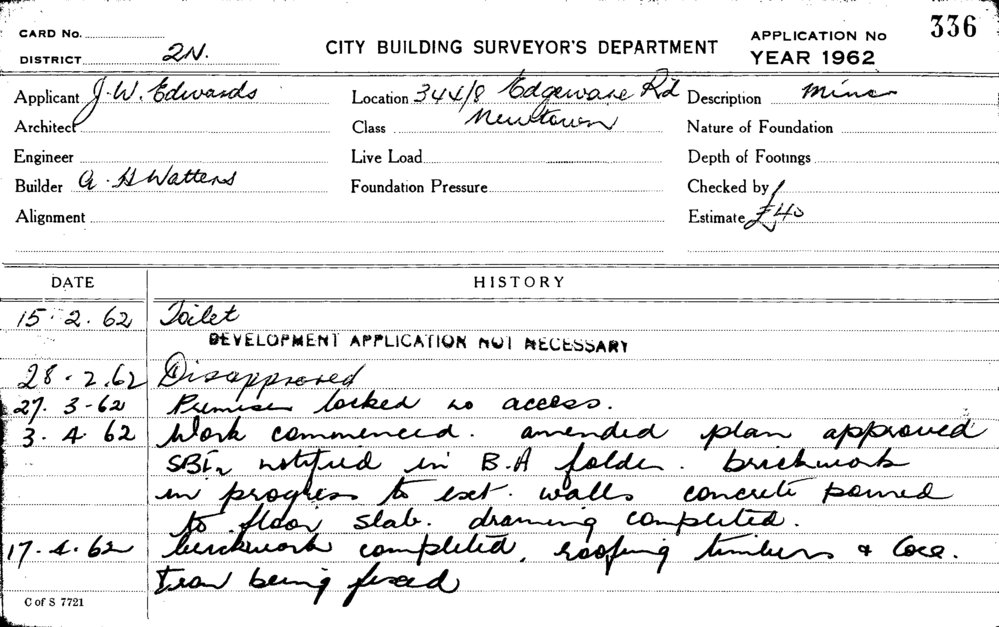 336
CARD No.
DISTRICT 2N.
CITY BUILDING SURVEYOR'S DEPARTMENT
APPLICATION No
YEAR 1962
Applicant J. W. Edwards
Location 344/8 Edgeware Rd
Newtown
Description Minor
Architect
Class
Nature of Foundation
Engineer
Live Load
Depth of Footings
Builder A. H Watters
Foundation Pressure
Checked by
Alignment
Estimate £40
DATE HISTORY
15.2.62 Toilet
DEVELOPMENT APPLICATION NOT NECESSARY
28.2.62 Disapproved
27.3-62 Premises locked no access.
3.4.62 Work commenced. amended plan approved
notified in B.A folder. brickwork
in progress to ext. walls concrete poured
to floor slab. draining completed.
17.4.62 brickwork completed, roofing timbers &
Iron being fixed
C of S 7721